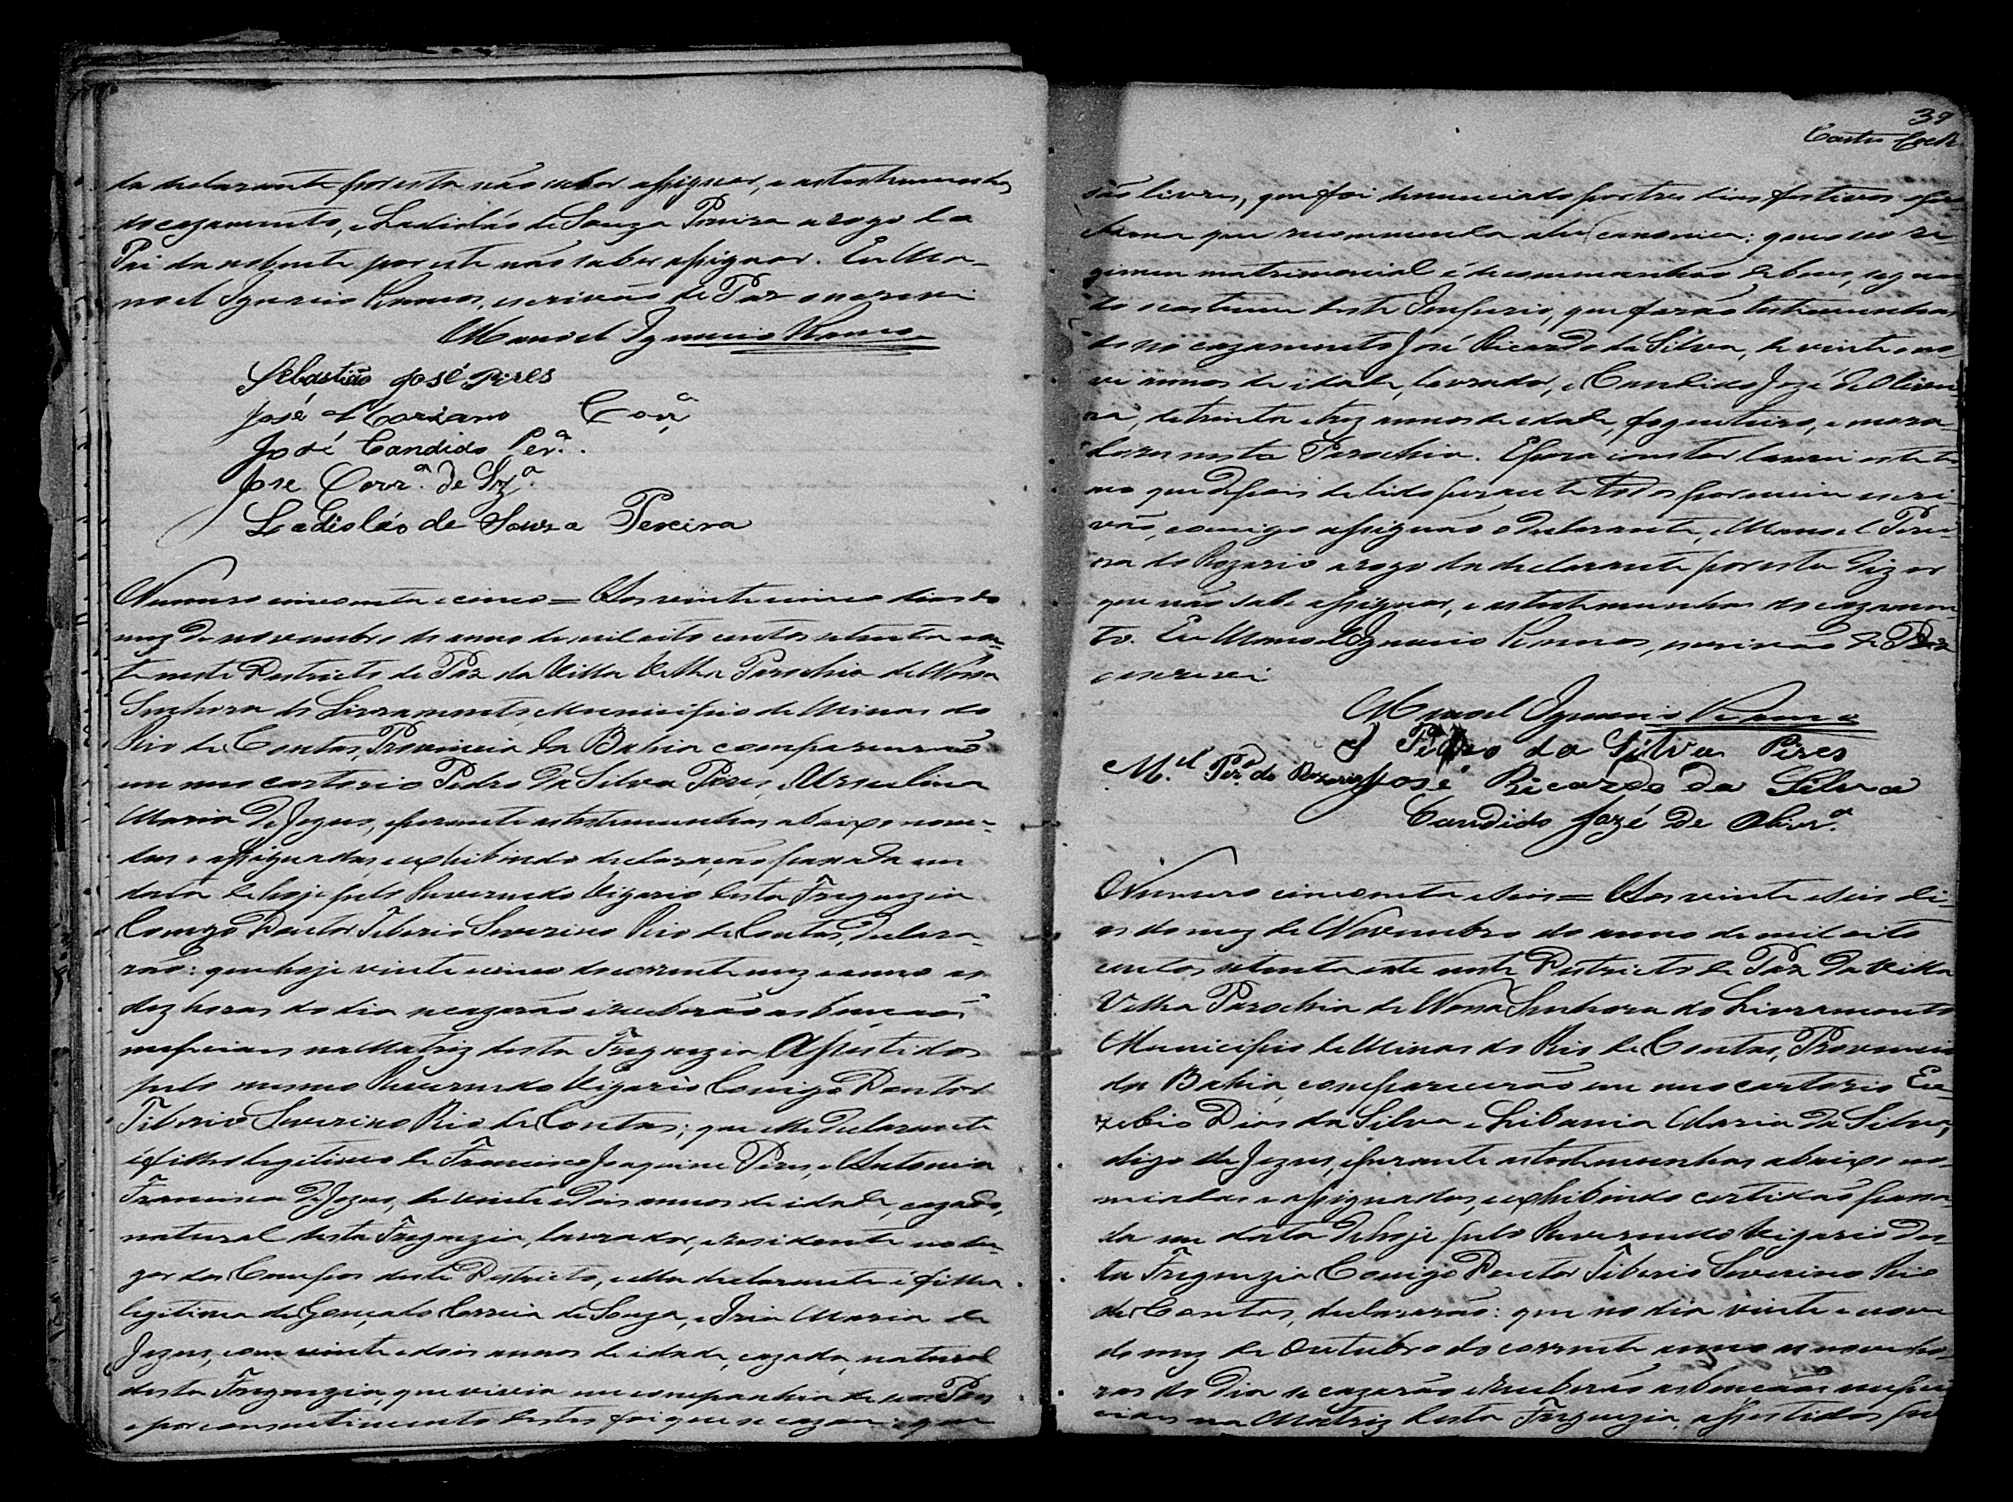 da declarante por esta não saber assignar, e as testemunhas
do cazamento, e Ladisláo de Souza Pereira a rogo do
Pai da nubente por este não saber assignar. Eu Ma-
noel Ignacio Ramos, escrivão de Paz o escrevi
Manoel Ignacio Ramos
Sebastião José Pires
José Coriano Corrª
José Candido Perª.
Jose Corrª. de Szª
Ladisláo de Souza Pereira
Numero cincoenta e cinco = Aos vinte cinco dias do
mez de novembro do anno de mil oito centos setenta e se-
te neste Destricto de Paz da Villa Velha Parochia de Nossa
Senhora do Livramento, Municipio de Minas do
Rio de Contas, Provincia da Bahia comparecerão
em meu cartorio Pedro da Silva Pires, e Urculina
Maria de Jezus, e perante as testemunhas abaixo nomea-
das e assignadas, e exhibindo declaração passada em
data de hoje pelo Reverendo Vigario desta Freguezia
Conego Doutor Tiberio Severino Rio de Contas, declara-
rão: que hoje vinte cinco do corrente mez e anno as
dez horas do dia se cazarão e receberão as bençaõs
nupciaes na Matriz desta Freguezia Assistidos
pelo mesmo Reverendo Vigario Conego Doutor
Tiberio Severino Rio de Contas; que elle declarante
é filho legitimo de Francisco Joaquim Pires, e Antonia
Francisca de Jezus, de vinte e dois annos de idade, cazado,
natural desta Freguezia, lavrador, e residente no lu-
gar dos Campos deste Destricto, e ella declarante é filha
legitima de Gonçalo Correia de Souza, e Iria Maria de
Jezus, com vinte e dois annos de idade, cazada, natural
desta Freguezia, que vivia em companhia de seos Pais
e por consentimento destes foi que se cazou: e que
39
Castro
são livres, que foi denunciado por tres dias festivos e pela
forma que recommenda a lei canonica: que o seo re-
gimen matrimonial é de communhão de bens, segun-
do o costume deste Imperio, que forão testemunhas
do seo cazamento José Ricardo da Silva, de vinte e no-
ve annos de idade, lavrador, e Candido José de Olivei-
ra, de trinta e trez annos de idade, fogueteiro, e mora-
dores nesta Parochia. E para constar lavrei este ter-
mo que depois de lido perante todos por mim escri-
vão, comigo assignão o declarante, e Manoel Perei-
ra do Rozario a rogo da declarante por esta dizer
que não sabe assignar, e as testemunhas do cazamen-
to. Eu Manoel Ignacio Ramos, escrivão de Paz
o escrevi
Manoel Ignacio Ramos
Pedro da Silva Pires
M.el Perª do Rozario José Ricardo da Silva
Candido José de Olivrª.
Numero cincoenta e seis = Aos vinte e seis di-
as do mez de Novembro do anno de mil oito
centos setenta e sete neste Destricto de Paz da Villa
Velha Parochia de Nossa Senhora do Livramento
Municipio de Minas do Rio de Contas, Provincia
da Bahia, comparecerão em meu cartorio Eu-
zebio Dias da Silva e Libania Maria da Silva,
digo de Jezus, e perante as testemunhas abaixo no-
meadas e assignadas, e exhibindo certidão passa-
da em data de hoje pelo Reverendo Vigario des-
ta Freguezia Conego Doutor Tiberio Severino Rio
de Contas, declararão: que no dia vinte e nove
do mez de Outubro do corrente anno as nove ho-
ras do dia se cazarão e receberão as bençaõs nup-
ciaes na Matriz desta Freguezia, assistidos pelo